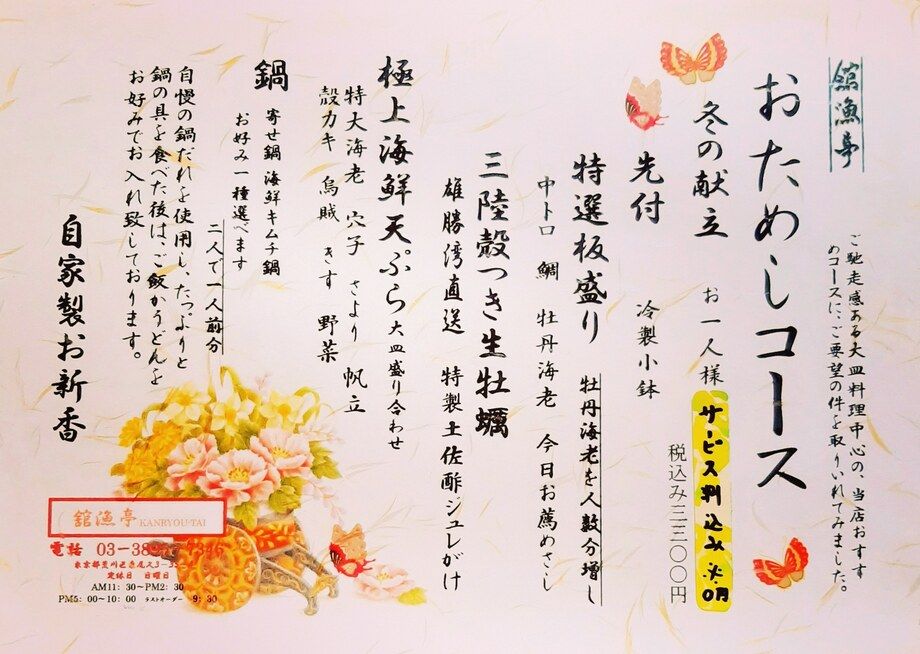 舘漁亭
ご馳走感ある大皿料理中心の、当店おすす
めコースに、ご要望の件を取りいれてみました。
おためしコース
冬の献立 お一人様
サービス料込み
税込み三三〇〇円
先付 冷製小鉢
特選板盛り 牡丹海老を人数分増し
中トロ 鯛 牡丹海老 今日お薦めさし
三陸殻つき生牡蠣
雄勝湾直送 特製土佐酢ジュレがけ
極上海鮮天ぷら 大皿盛り合わせ
特大海老 穴子 さより 帆立
殻カキ 烏賊 きす 野菜
鍋 寄せ鍋 海鮮キムチ鍋
お好み一種選べます
二人で一人前分
自慢の鍋だれを使用し、たっぷりと
鍋の具を食べた後は、ご飯かうどんを
お好みでお入れ致しております。
自家製お新香
舘漁亭 KANRYOU-TAI
電話
定休日 日曜日
AM11:30~PM2:30
PM5:00~10:00 ラストオーダー 9:30